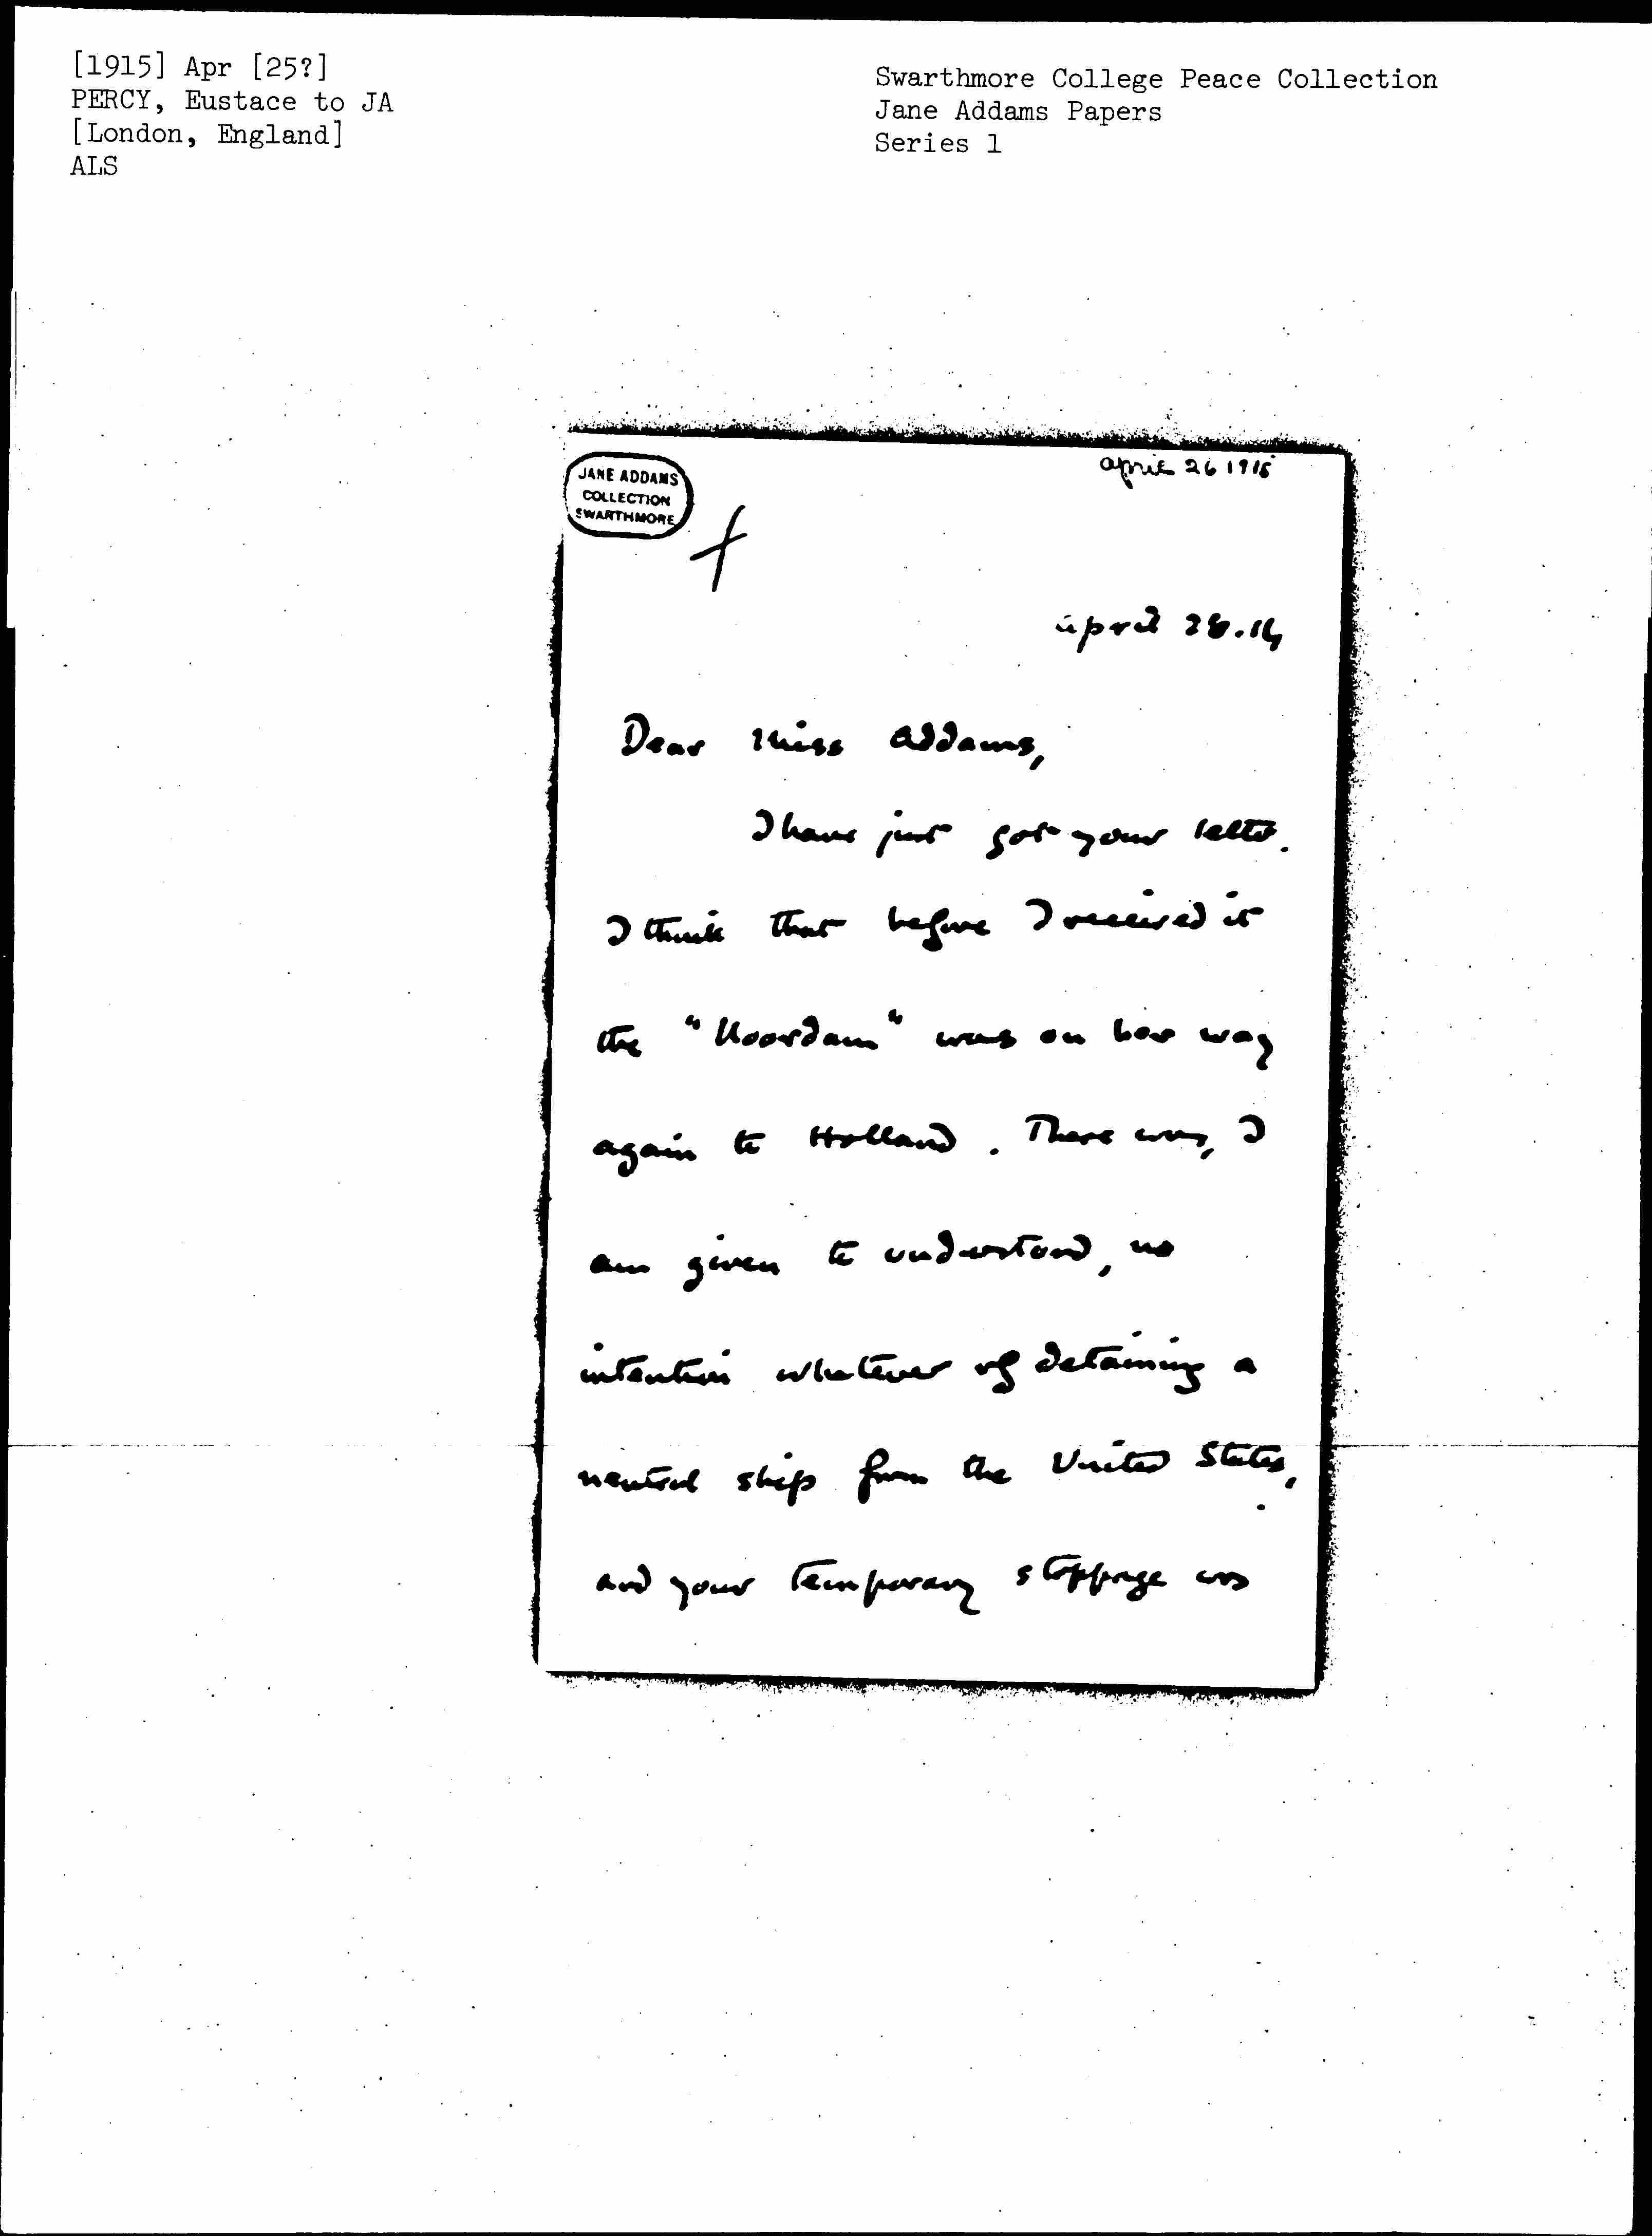 [1915] Apr [25?]
PERCY, Eustace to JA
[London, England]
ALS
Swarthmore College Peace Collection
Jane Addams Papers
Series 1
JANE ADDAMS
COLLECTION
SWARTHMORE
April 26 1915
April
Dear Miss Addams,
I have just got your letter.
I think that before I received it
the "Noordam" was on her way
again to Holland. There was, I
am given to understand, no
intention whatever of detaining a
neutral ship from the United States,
and your temporary stoppage was